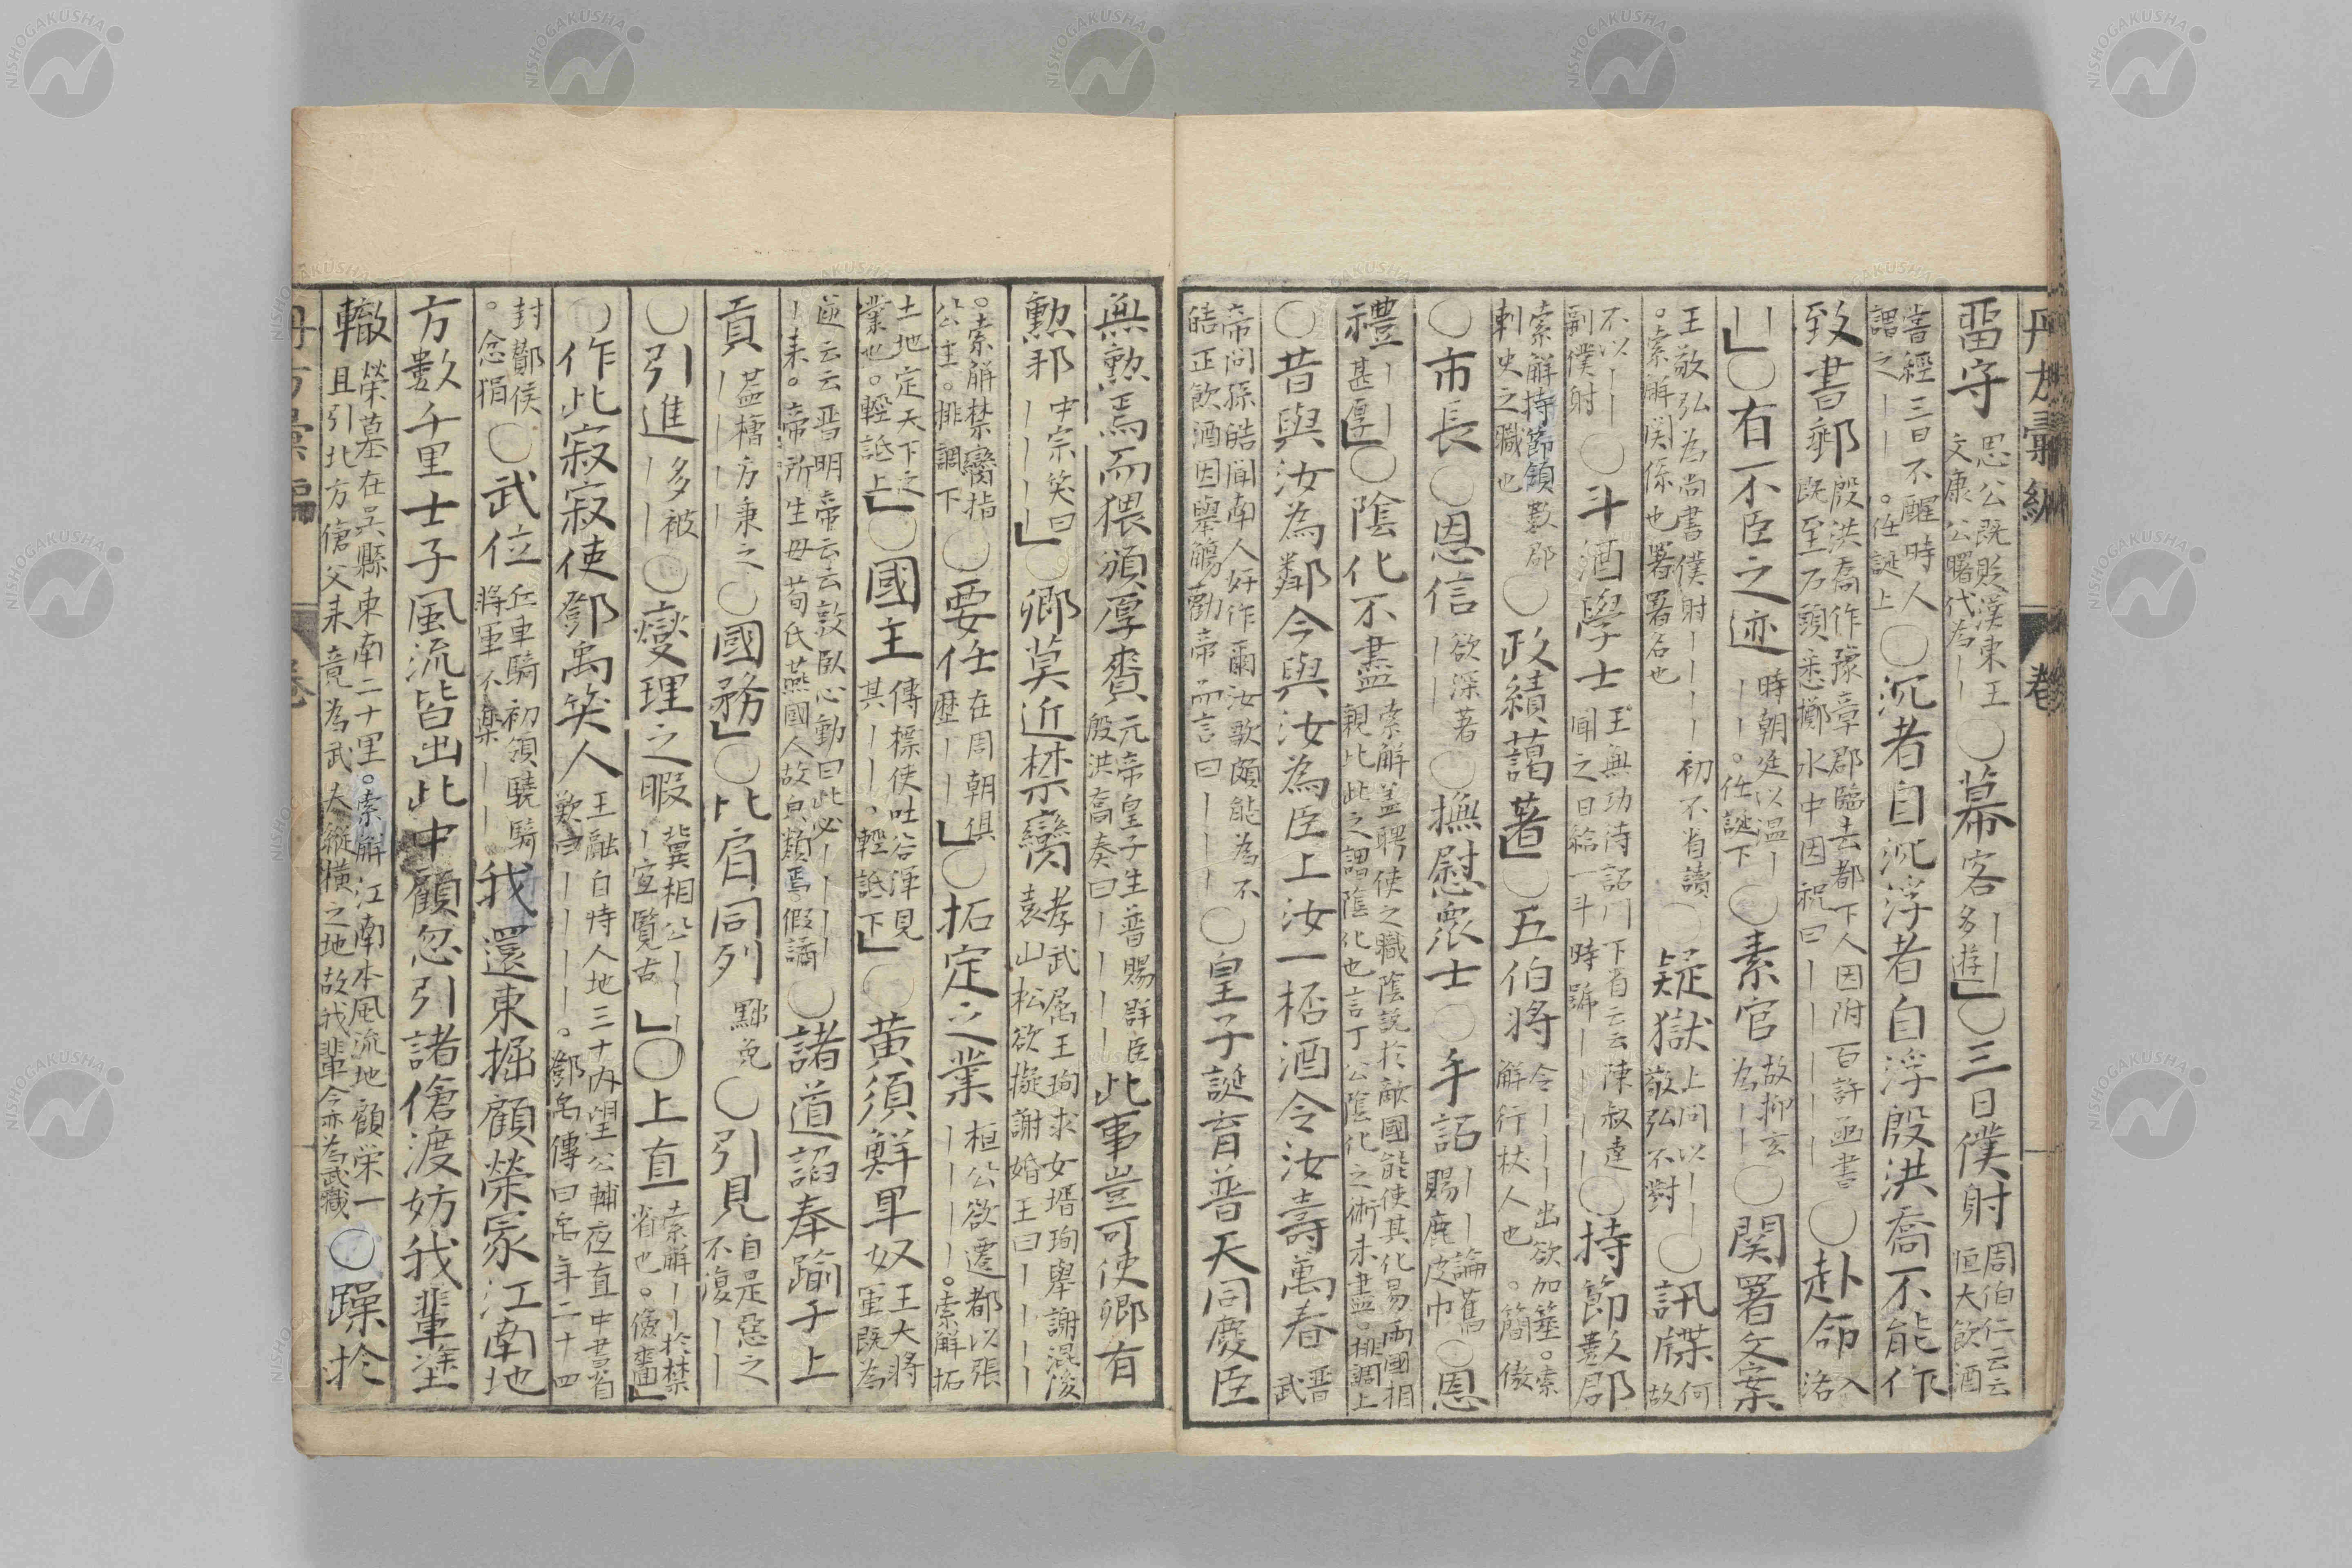 丹方彙編 卷
留守 思公既貶漢東王 文康公曙代為―― ○幕客 ―― 多遊」○三日僕射 周伯仁云云 恒大飲酒
嘗經三日不醒時人 謂之――。任誕上 ○沉者自沉浮者自浮殷洪喬不能作
致書郵 殷洪喬作豫章郡臨去都下人因附百許函書 既至石頭悉擲水中因祝曰―――― ○赴命 入 洛
――」○有不臣之迹 時朝廷以温― ――。任誕下 ○素官 故抑玄 為―― ○関署文案
王敬弘為尚書僕射――――初不省讀 。索解関係也署署名也 ○疑獄 上問以―― 敬弘不對 ○訊牒 何 故
不以―― 副僕射 ○斗酒學士 王無功待詔門下省云云陳叔達 聞之日給一斗時號―――― ○持節数郡
索解持節領数郡 刺史之職也 ○政績藹著」○五伯將 令―――出欲加箠。索 解行杖人也 。簡傲
○市長○恩信 欲深著 ―― ○撫慰衆士○手詔 ――論舊 賜鹿皮巾 ○恩
禮 ―― 甚厚」○陰化不盡 索解蓋聘使之職陰説於敵國能使其化易兩國相 親比此之謂陰化也言丁公陰化之術未盡。排調上
○昔與汝為鄰今與汝為臣上汝一桮酒令汝壽萬春 晋 武
帝問孫皓聞南人好作爾汝歌頗能為不 皓正飲酒因舉觴勸帝而言曰――― ○皇子誕育普天同慶臣
無勲焉而猥頒厚賚 元帝皇子生普賜群臣 殷洪喬奏曰―――― 此事豈可使卿有
勲邪 中宗笑曰 ――――」○卿莫近禁臠 孝武属王珣求女壻珣舉謝混後 袁山松欲擬謝婚王曰――――
。索解禁臠指 公主。排調下 ○要任 在周朝俱 歴――」○拓定之業 桓公欲遷都以張 ――――。索解拓
土地定天下之 業也。輕詆上」○國主 傳標使吐谷渾見 其――。輕詆下」○黄須鮮卑奴 王大將 軍既為
逆云云晋明帝云云敦臥心動曰此必――― ―来。帝所生母荀氏燕國人故皃類焉。假譎 ○諸道謟奉踰于上
貢 ―盖檣方秉之 ――― ○國務」○比肩同列 黜免 ○引見 自是惡之 不復――
○引進 多被 ―― ○燮理之暇 冀相公――― ―宣覧古 」○上直 索解――於禁 省也。儉嗇」
○作此寂寂使鄧禹笑人 王融自恃人地三十内望公輔夜直中書省 歎曰――――。鄧禹傳曰禹年二十四
封酇侯 。忿狷 ○武位 丘車騎初領驍騎 將軍不樂―― 我還東掘顧榮冢江南地
方数千里士子風流皆出此中顧忽引諸傖渡妨我輩塗
轍 榮墓在呉縣東南二十里。索解江南本風流地顧栄一 且引北方傖父来竟為武夫縦横之地故我輩今亦為武職 ○躁於
丹方彙編 卷
NISHOGAKUSHA